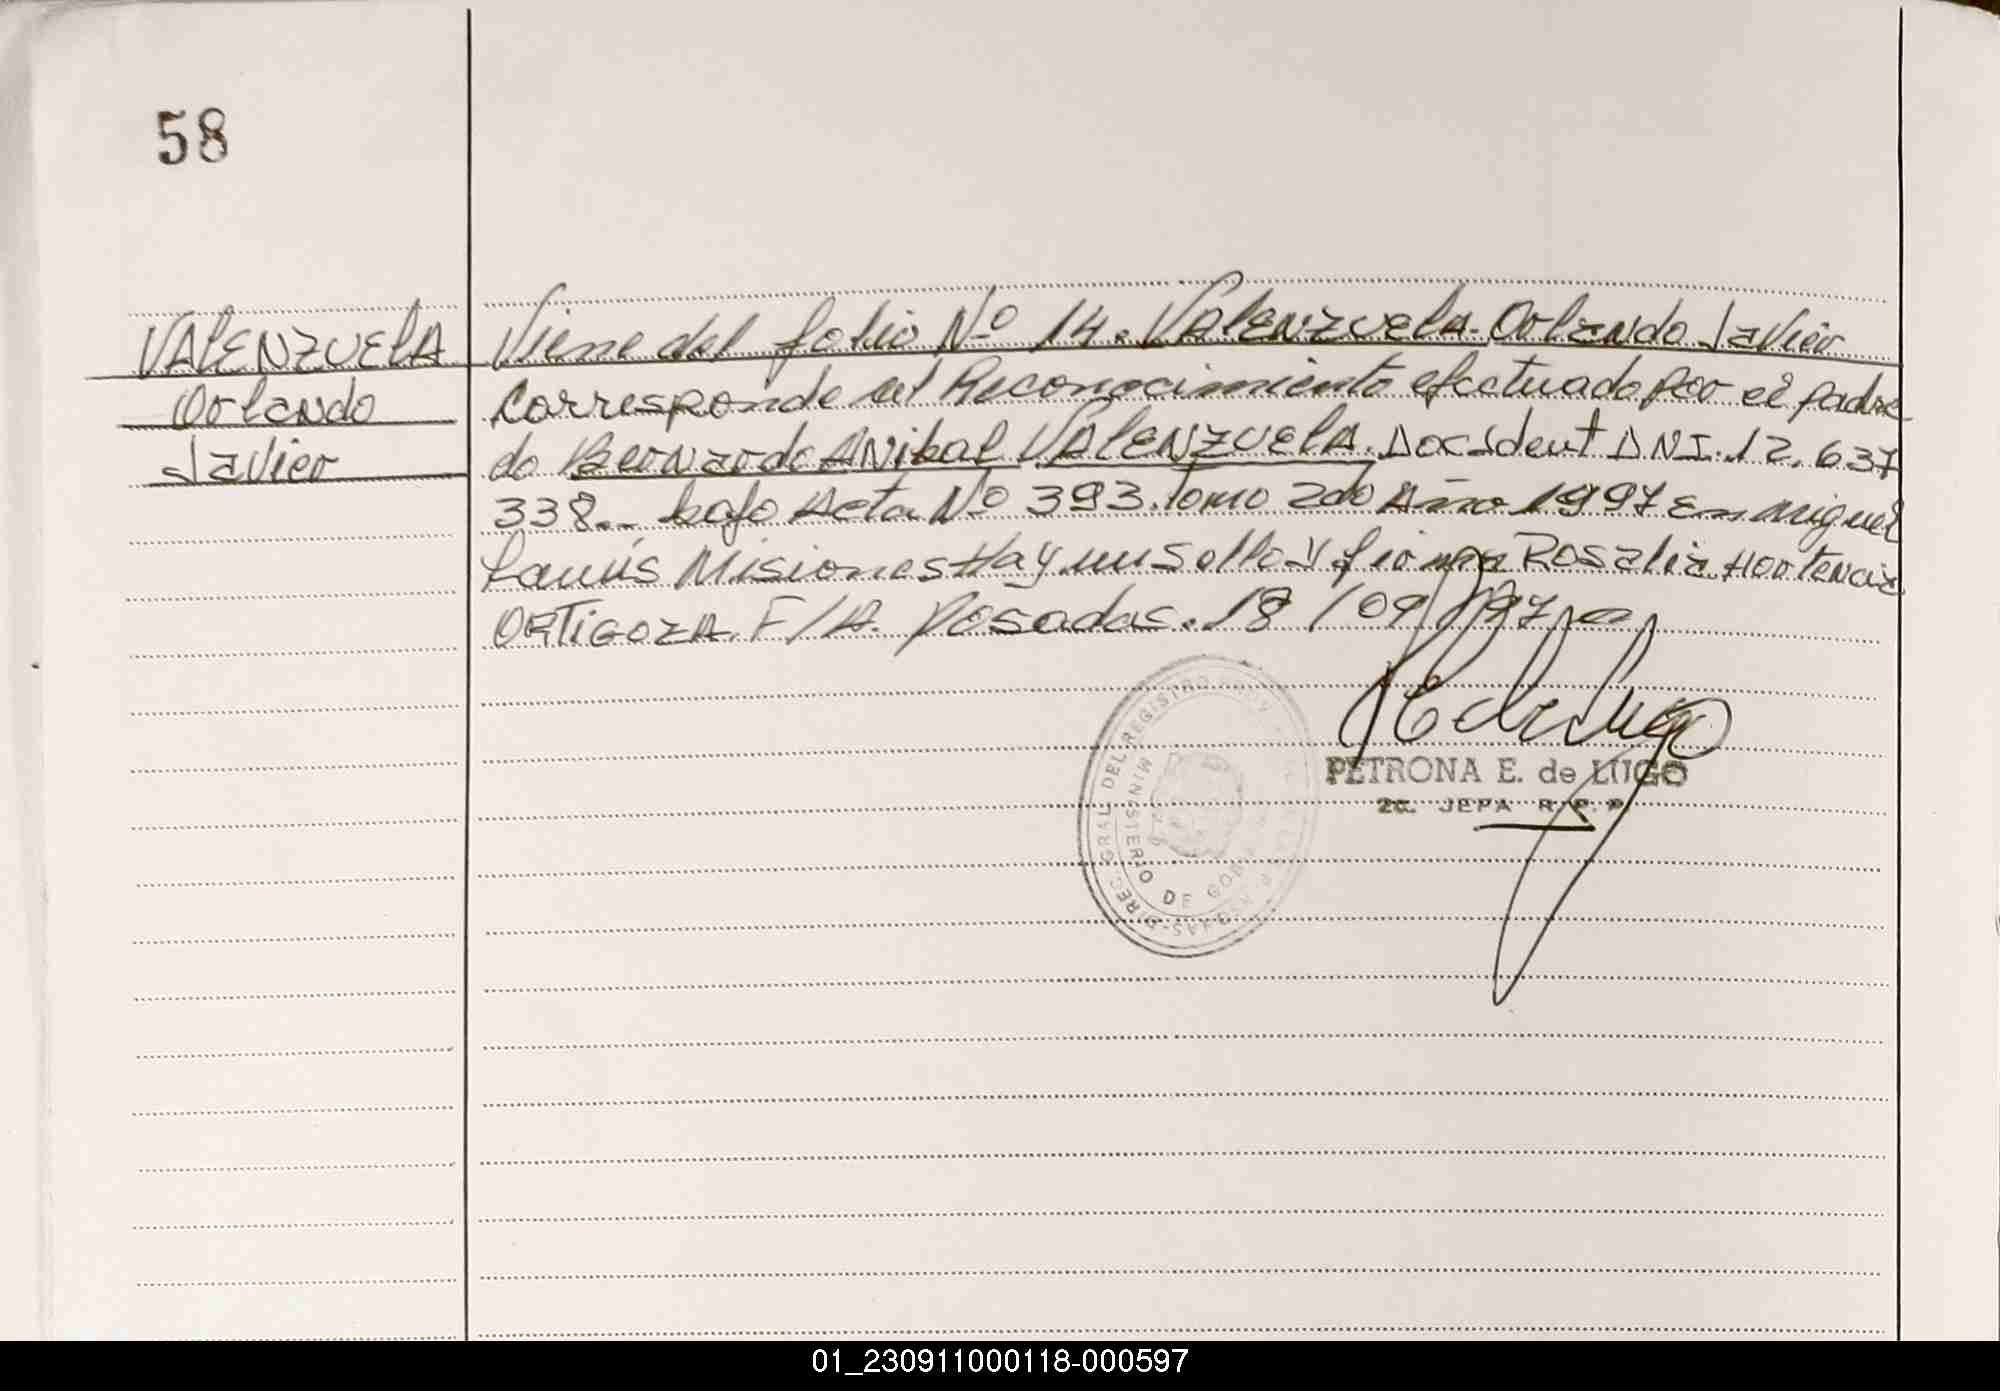 58
VALENZUELA
Orlando
Javier
Viene del folio Nº 14. VALENZUELA. Orlando Javier
Corresponde al Reconocimiento efectuado por el padre
do Bernardo ANibal VALENZUELA. Doc Ident DNI. 12.637
338.. bajo Acta Nº 393. Tomo 2do Año 1997 En Miguel
Lanús Misiones Hay un Sello y firma Rosalia Hortencia
ORTIGOZA. F/A. Posadas. 18/09/97
DIREC. GRAL. DEL REGISTRO
MINISTERIO DE GOB
PETRONA E. de LUGO
2a. JEFA R. P. P.
01_230911000118-000597